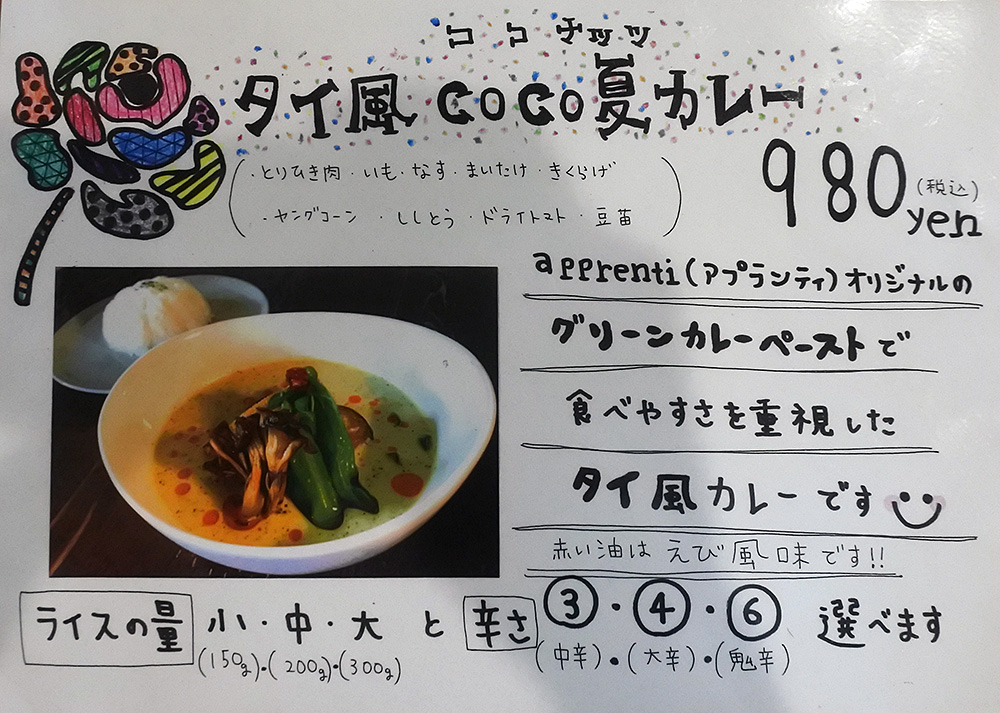 ココナッツ
タイ風coco夏カレー
(・とりひき肉・いも・なす・まいたけ・きくらげ
・ヤングコーン・ししとう・ドライトマト・豆苗)
980yen(税込)
apprenti(アプランティ)オリジナルの
グリーンカレーペーストで
食べやすさを重視した
タイ風カレーです
赤い油はえび風味です!!
ライスの量 小・中・大 と 辛さ ③・④・⑥ 選べます
(150g)・(200g)・(300g) (中辛)・(大辛)・(鬼辛)